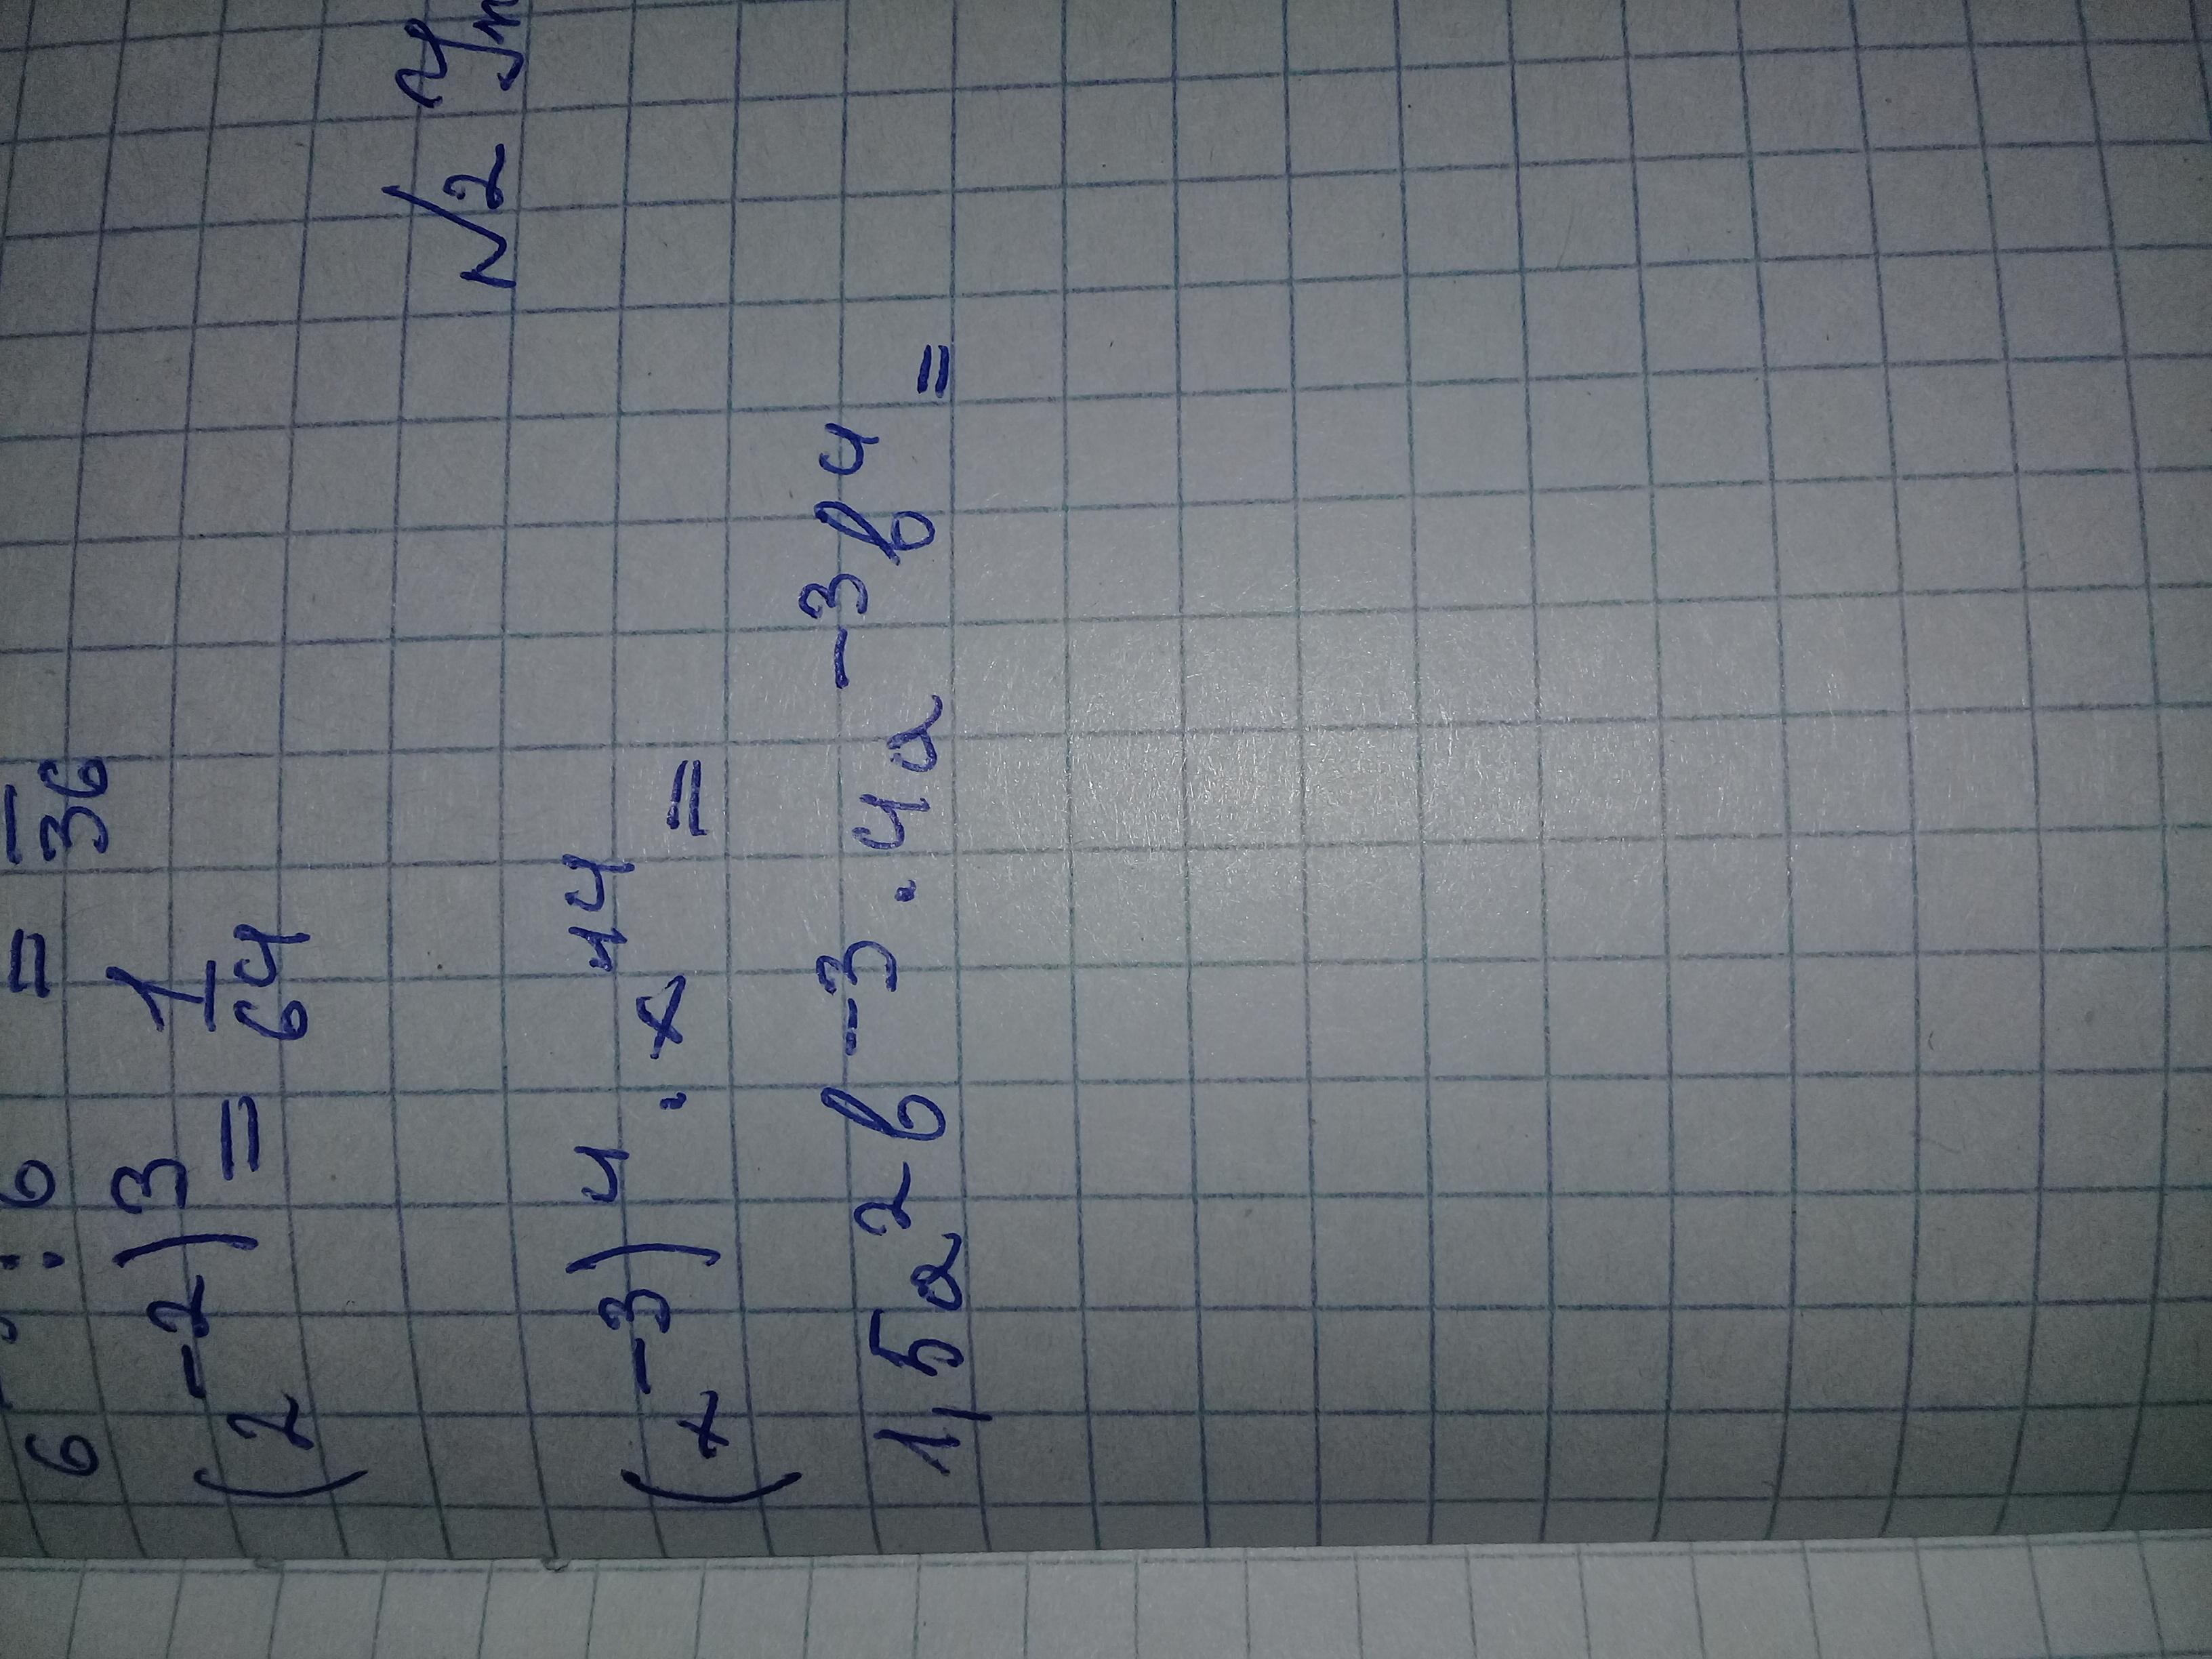 6 : 6 = 36
(2⁻²)³ = 1/64
№2
(x⁻³)⁴ · x¹⁴ =
1,5a²b⁻³ · 4a⁻³b⁴ =